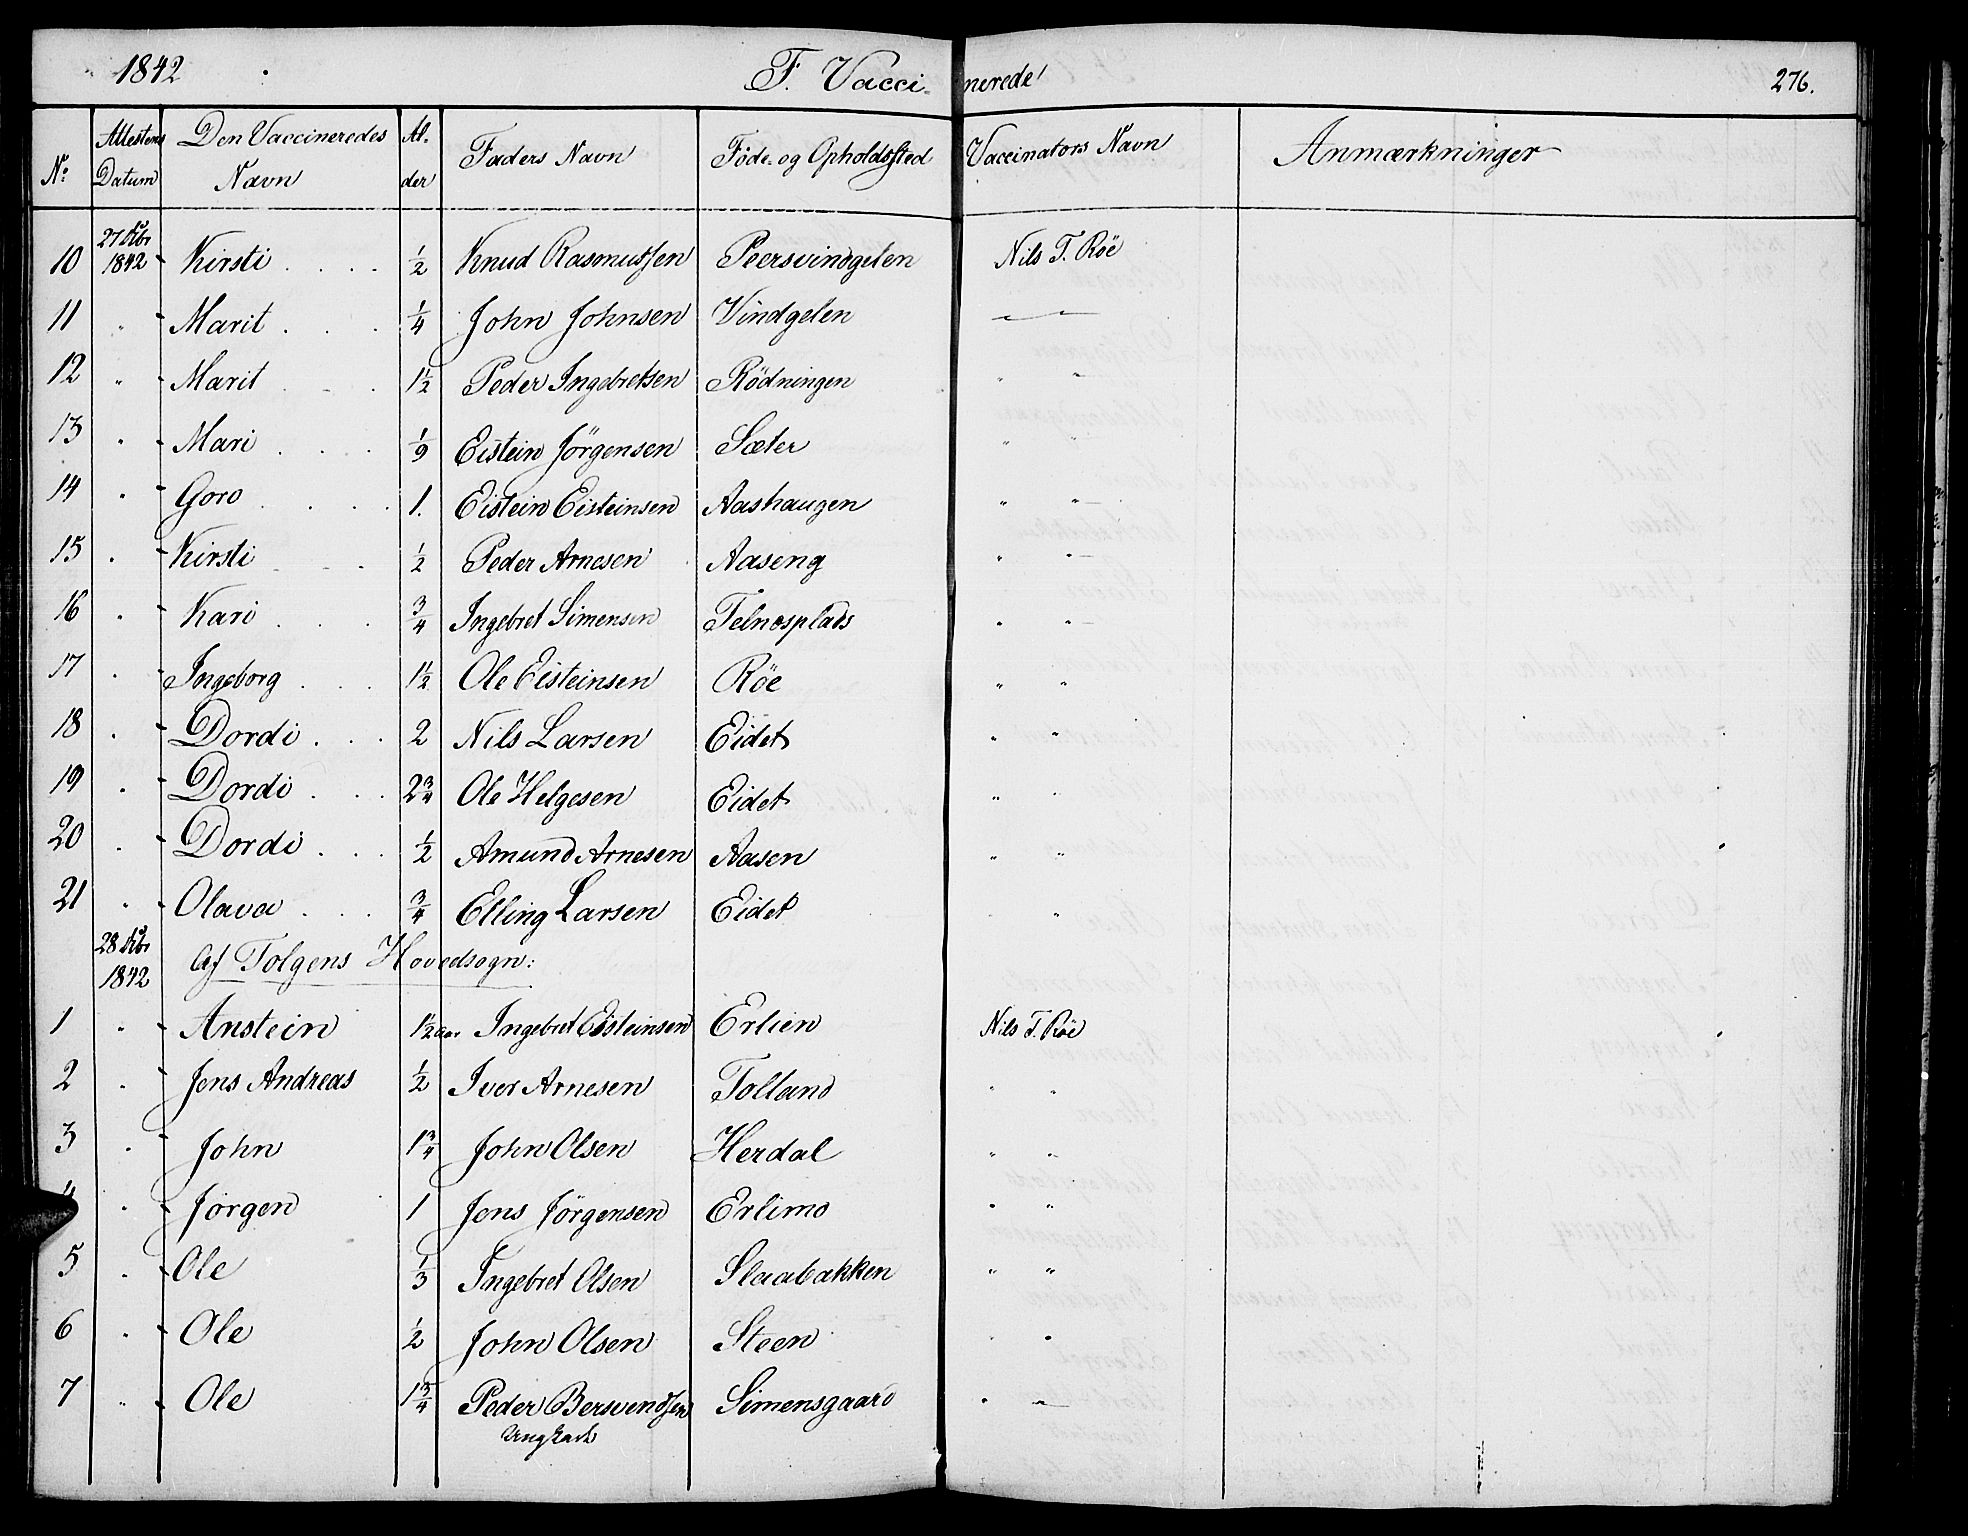 1842 F. Vaccinerede 276.
No. Attestens Datum Den Vaccineredes Navn Alder Faders Navn Føde- og Opholdssted Vaccinators Navn Anmærkninger
10 1842 Kirsti 1/2 Knud Rasmussen Peersvindgelen Nils T. Röe
11 " Marit 1/4 John Johnsen Vindgelen —
12 " Marit 1 1/2 Peder Ingebretsen Rödningen " "
13 " Mari 1/9 Eistein Jörgensen Sæter " "
14 " Goro 1. Eistein Eisteinsen Aashaugen " "
15 " Kirsti 1/2 Peder Arnesen Aaseng " "
16 " Kari 3/4 Ingebret Simensen Telnesplads " "
17 " Ingeborg 1 1/2 Ole Eisteinsen Röe " "
18 " Dordi 2 Nils Larsen Eidet " "
19 " Dordi 2 3/4 Ole Helgesen Eidet " "
20 " Dordi 1/2 Amund Arnesen Aasen " "
21 " Olava 3/4 Elling Larsen Eidet "
1842 Af Tolgens Hovedsogn:
1 " Anstein 1 1/2 aar Ingebret Eisteinsen Erlien Nils T. Röe
2 " Jens Andreas 1/2 Iver Arnesen Tolland " "
3 " John 1 3/4 John Olsen Herdal " "
" Jörgen 1 Jens Jörgensen Erlimo " "
5 " Ole 1/3 Ingebret Olsen Slaabakken " "
6 " Ole 1/2 John Olsen Steen " "
7 " Ole 1 3/4 Peder Bersvendsen Simensgaard " "
Ungkarl